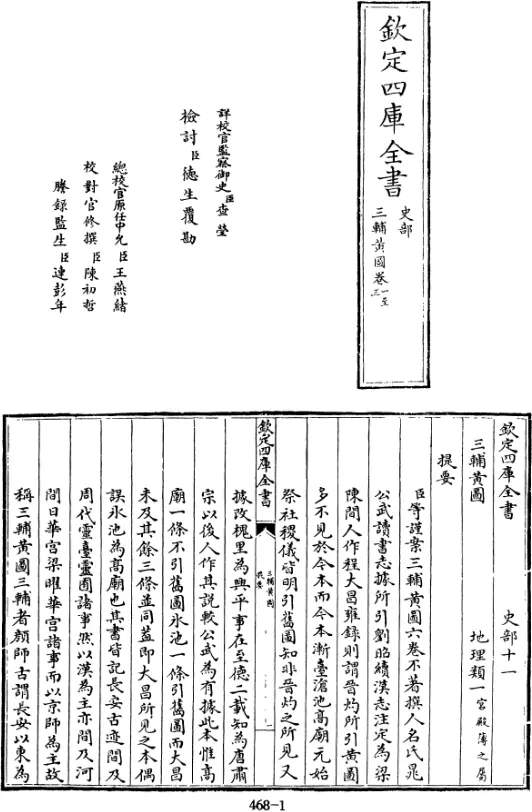 欽定四庫全書
史部
三輔黃圖卷一至三
詳校官監察御史臣查瑩
檢討臣德生覆勘
總校官原任中允臣王燕緒
校對官修撰臣陳初哲
謄錄監生臣連彭年
欽定四庫全書 史部十一
三輔黃圖 地理類一宮殿簿之屬
提要
臣等謹案三輔黃圖六卷不著撰人名氏晁
公武讀書志據所引劉昭續漢志注定為梁
陳間人作程大昌雍錄則謂晉灼所引黃圖
多不見於今本而今本漸臺滄池高廟元始
祭社稷儀皆明引舊圖知非晉灼之所見又
欽定四庫全書
三輔黃圖
提要
據改槐里為興平事在至德二載知為唐肅
宗以後人作其說較公武為有據此本惟高
廟一條不引舊圖氷池一條引舊圖而大昌
未及其餘三條並同蓋即大昌所見之本偶
誤氷池為高廟也其書皆記長安古迹間及
周代靈臺靈囿諸事然以漢為主亦間及河
間日華宮梁曜華宮諸事而以京師為主故
稱三輔黃圖三輔者顏師古謂長安以東為
468-1